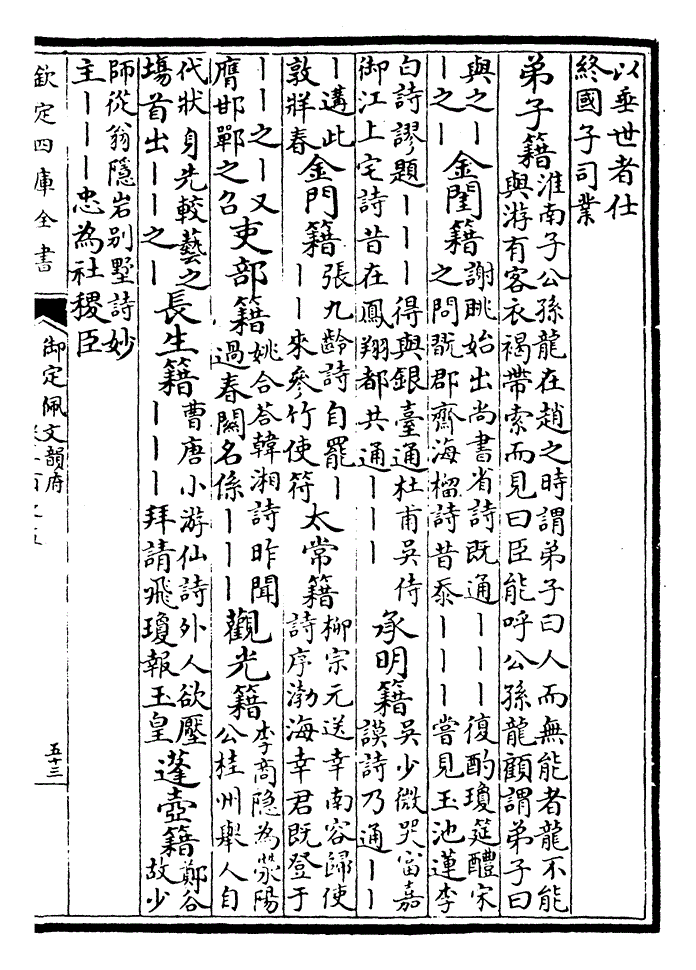 以垂世者仕
終國子司業
弟子籍
淮南子公孫龍在趙之時謂弟子曰人而無能者龍不能
與游有客衣褐帶索而見曰臣能呼公孫龍顧謂弟子曰
與之丨
丨之丨
金閨籍
謝眺始出尚書省詩既通丨丨丨復酌瓊筵醴宋
之問翫郡齋海榴詩昔忝丨丨丨嘗見玉池蓮李
白詩謬題丨丨丨得與銀臺通杜甫吳侍
御江上宅詩昔在鳳翔都共通丨丨丨
承明籍
吳少微哭富嘉
謨詩乃通丨丨
丨遘此
敦牂春
金門籍
張九齡詩自罷丨
丨丨來參竹使符
太常籍
柳宗元送幸南容歸使
詩序渤海幸君既登于
丨丨之丨又
膺邯鄲之召
吏部籍
姚合荅韓湘詩昨聞
過春闗名係丨丨丨
觀光籍
李商隐為滎陽
公桂州舉人自
代狀身先較藝之
塲首出丨丨之丨
長生籍
曹唐小游仙詩外人欲壓
丨丨丨拜請飛瓊報玉皇
蓬壺籍
鄭谷
故少
師從翁隱岩别墅詩妙
主丨丨丨忠為社稷臣
欽定四庫全書
御定佩文韻府
五十三